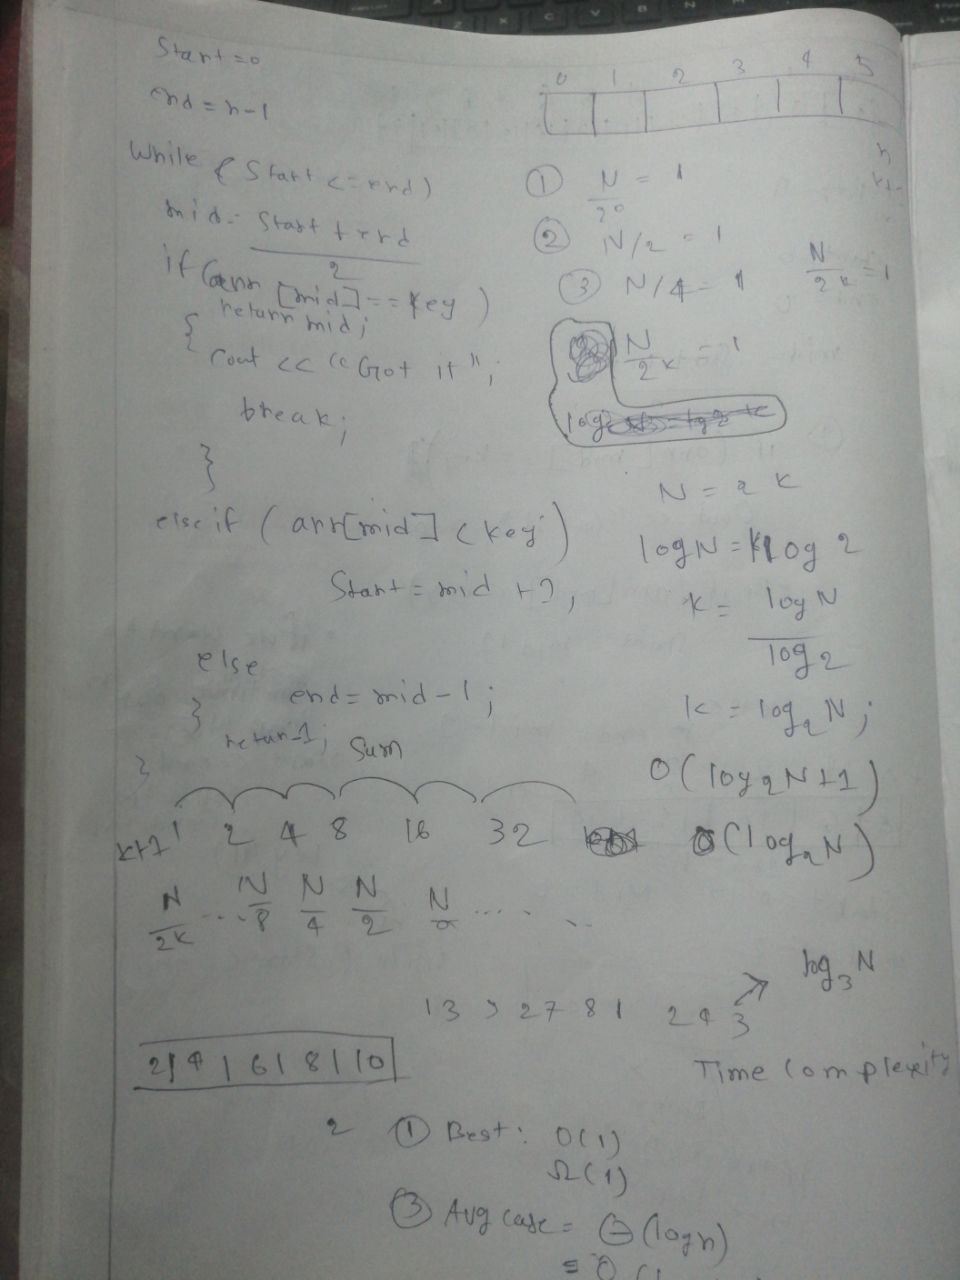 Start = 0
end = n-1
While ( Start <= end )
mid = Start + end
2
if (arr [mid] == key )
return mid;
{
cout << "Got it";
break;
}
else if ( arr[mid] < key )
Start = mid +
else
end = mid - 1 ;
}
retur-1;
}
0 1 2 3 4 5
n
① N = 1
2⁰
② N/2 = 1
③ N/4 = 1
N = 1
2 k
N = 1
2 k
log
N = 2 k
log N = K log 2
k = log N
log 2
k = log₂ N ;
O ( log 2 N + 1 )
O ( log₂ N )
Sum
k+1 1 2 4 8 16 32
N ... N N N N .... . . ..
2k 8 4 2
1 3 9 27 81 243 log₃ N
2 | 4 | 6 | 8 | 10
Time Complexity
2 ① Best : O(1)
Ω(1)
③ Avg case = Θ (log n)
= O (